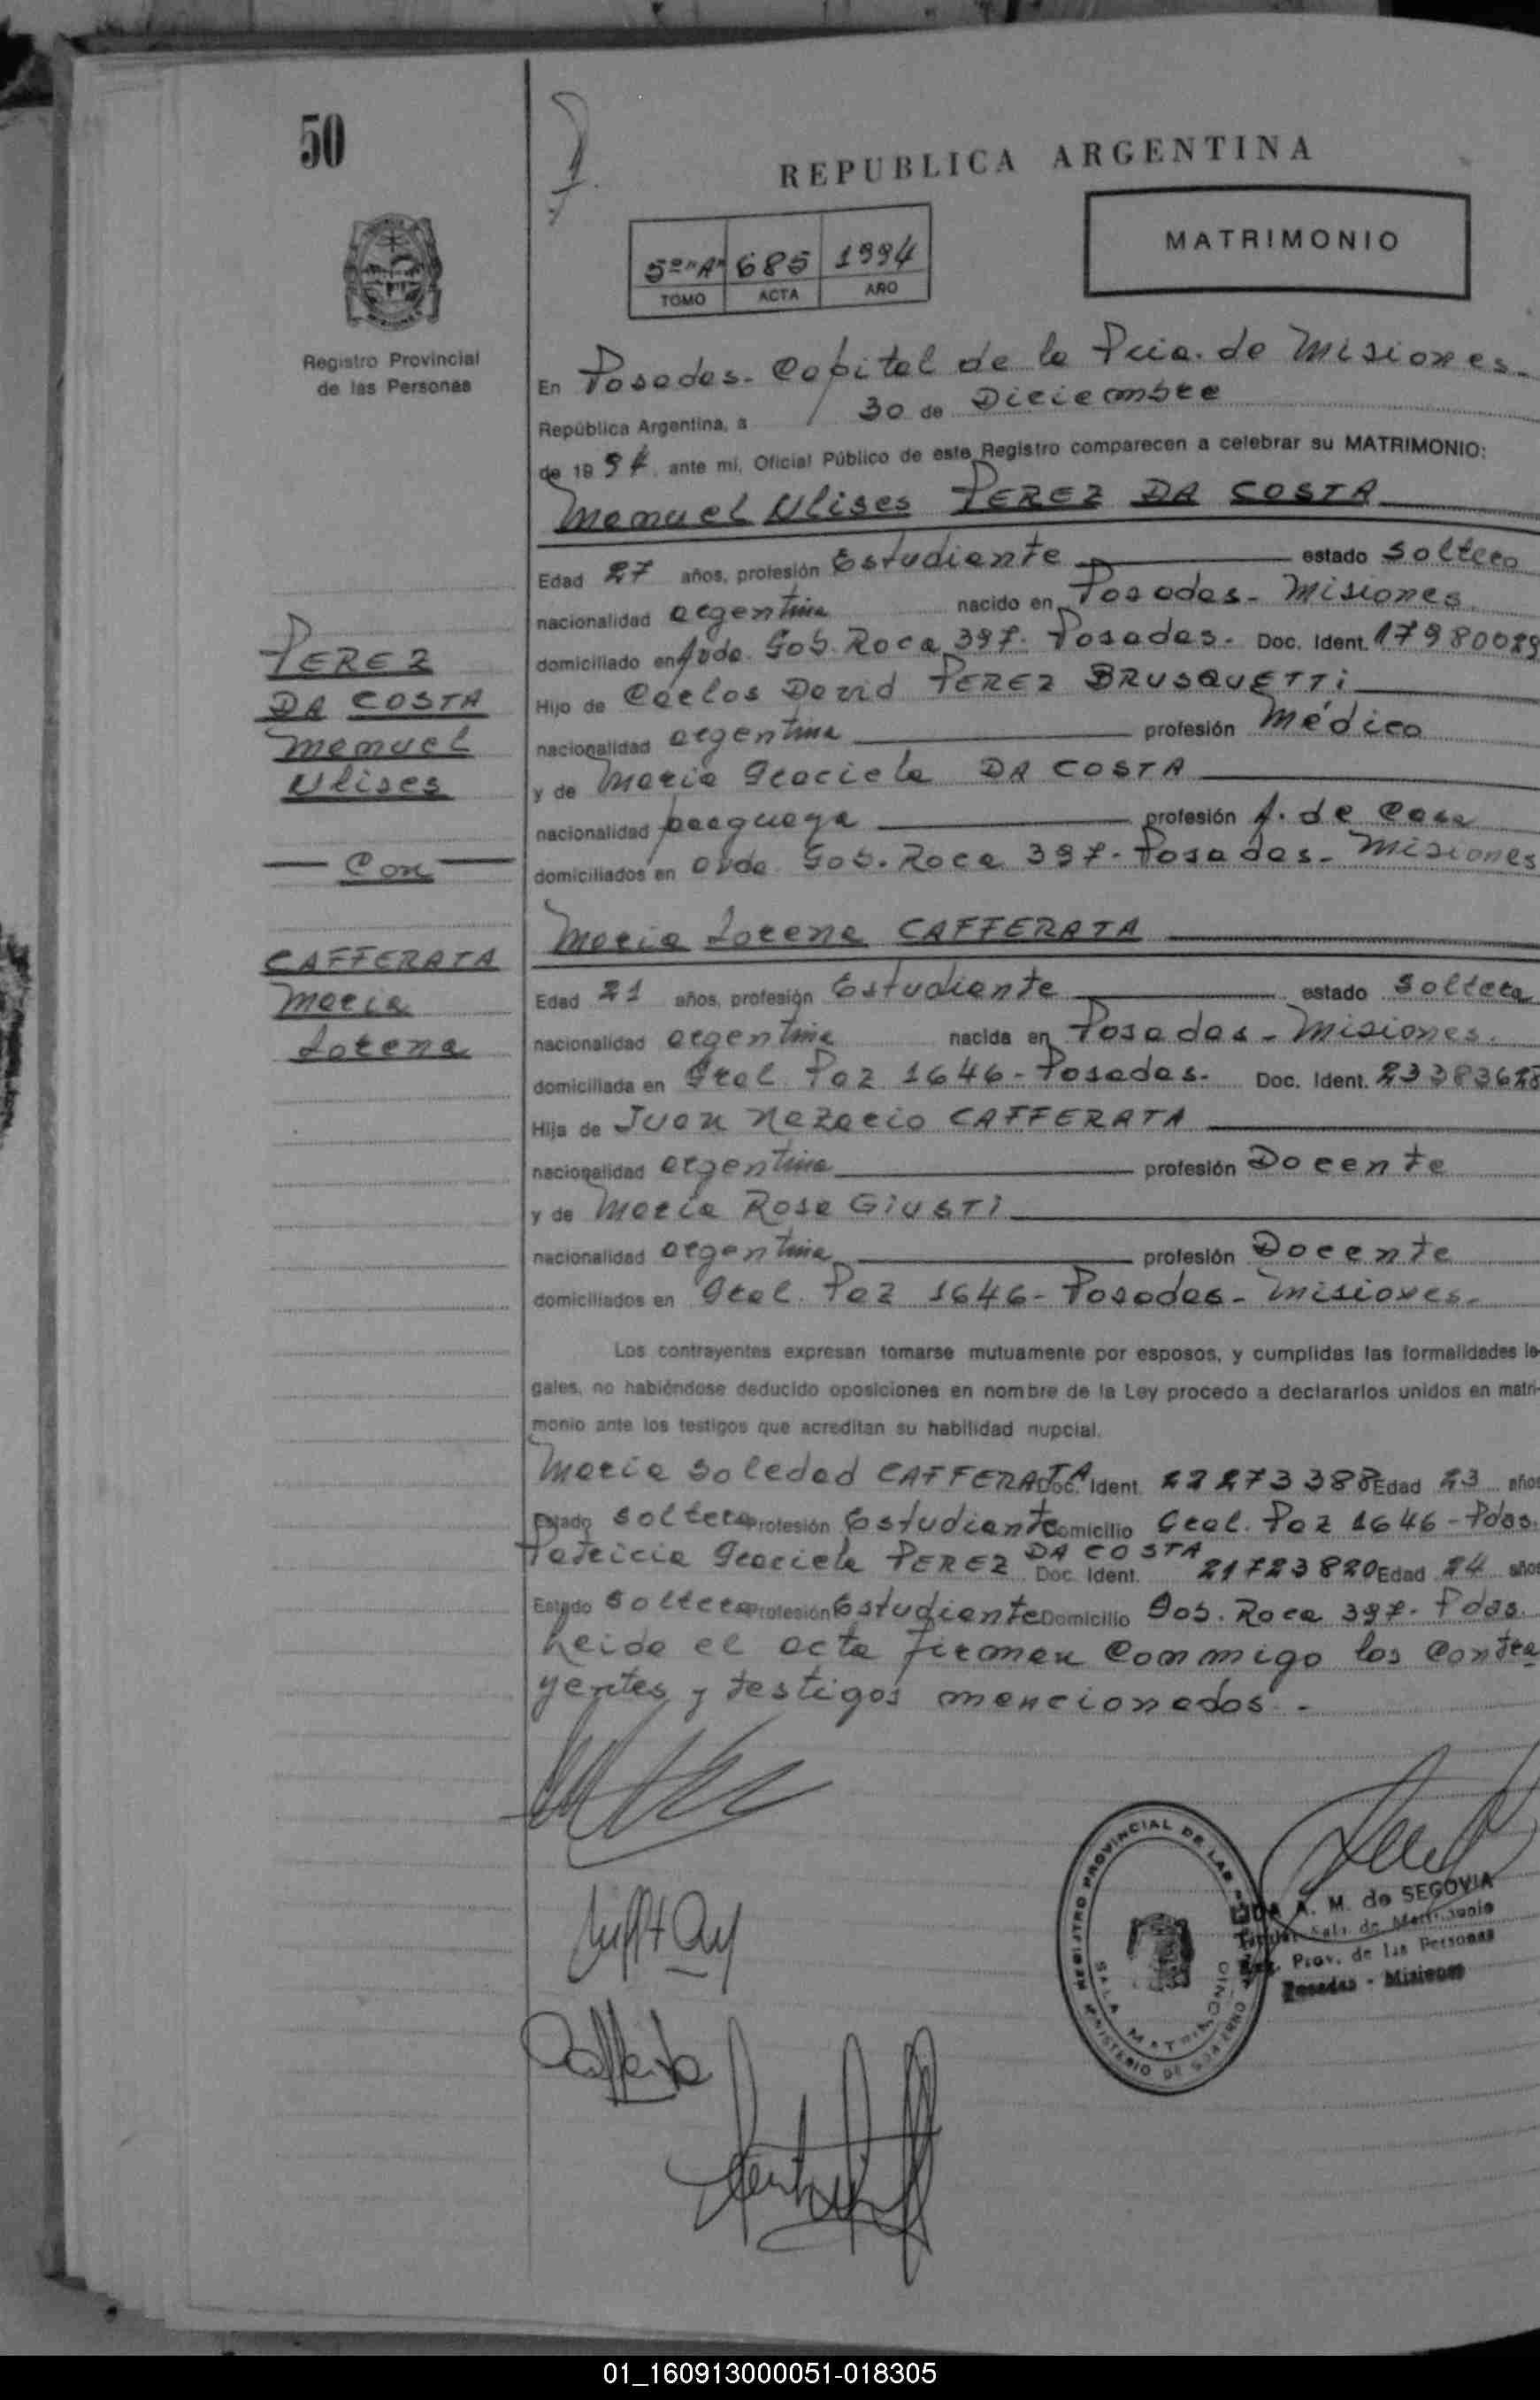 50
REPUBLICA ARGENTINA
MATRIMONIO
5º "A" 685 1994
TOMO ACTA AÑO
Registro Provincial
de las Personas
En Posadas - Capital de la Pcia. de Misiones -
República Argentina, a 30 de Diciembre
de 1994 ante mí, Oficial Público de este Registro comparecen a celebrar su MATRIMONIO:
Manuel Ulises PEREZ DA COSTA
Edad 27 años, profesión Estudiante estado soltero
nacionalidad argentina nacido en Posadas - Misiones
domiciliado en Avda. Gob. Roca 397. Posadas - Doc. Ident. 17980089
Hijo de Carlos David PEREZ BRUSQUETTI
nacionalidad argentina profesión Médico
y de Maria Graciela DA COSTA
nacionalidad paraguaya profesión A. de Casa
domiciliados en Avda. Gob. Roca 397 - Posadas - Misiones
PEREZ
DA COSTA
Manuel
Ulises
Con
CAFFERATA
Maria
Lorena
Maria Lorena CAFFERATA
Edad 21 años, profesión Estudiante estado soltera
nacionalidad argentina nacida en Posadas - Misiones.
domiciliada en Gral. Paz 1646 - Posadas - Doc. Ident. 23383628
Hija de Juan Nazario CAFFERATA
nacionalidad argentina profesión Docente
y de Maria Rosa GIUSTI
nacionalidad argentina profesión Docente
domiciliados en Gral. Paz 1646 - Posadas - Misiones -
Los contrayentes expresan tomarse mutuamente por esposos, y cumplidas las formalidades le-
gales, no habiéndose deducido oposiciones en nombre de la Ley procedo a declararlos unidos en matri-
monio ante los testigos que acreditan su habilidad nupcial.
Maria Soledad CAFFERATA Doc. Ident. 22273388 Edad 23 años
Estado soltera Profesión Estudiante Domicilio Gral. Paz 1646 - Pdas.
Patricia Graciela PEREZ DA COSTA Doc. Ident. 21723820 Edad 24 años
Estado soltera Profesión Estudiante Domicilio Gob. Roca 397 - Pdas.
Leida el acta firman conmigo los contra
yentes y testigos mencionados. -
REGISTRO PROVINCIAL DE LAS
MINISTERIO DE GOBIERNO
SALA MATRIMONIO
A. M. de SEGOVIA
Titular Sala de Matrimonio
Reg. Prov. de las Personas
Posadas - Misiones
01_160913000051-018305